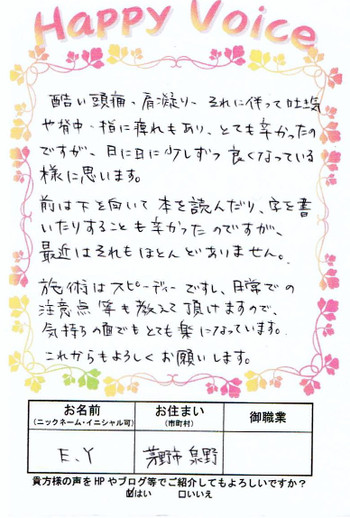 Happy Voice
酷い頭痛・肩凝り、それに伴って吐気
や背中・指に痺れもあり、とても辛かったの
ですが、日に日に少しずつ良くなっている
様に思います。
前は下を向いて本を読んだり、字を書
いたりすることも辛かったのですが、
最近はそれもほとんどありません。
施術はスピーディーですし、日常での
注意点等も教えて頂けますので、
気持ちの面でもとても楽になっています。
これからもよろしくお願いします。
お名前 お住まい 御職業
(ニックネーム・イニシャル可) (市町村)
E.Y 茅野市 泉野
貴方様の声をHPやブログ等でご紹介してもよろしいですか?
☑はい □いいえ